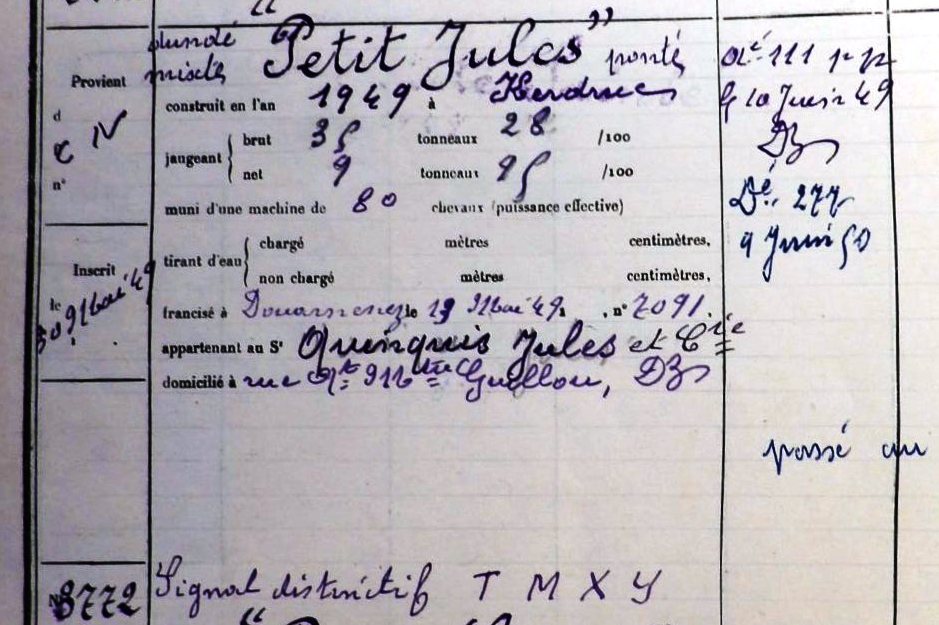 dundé
mixte "Petit Jules" ponté
Provient
d
C N
n°
construit en l'an 1949 à Kerdruc
jaugeant { brut 35 tonneaux 28 /100
net 9 tonneaux 95 /100
muni d'une machine de 80 chevaux (puissance effective)
tirant d'eau { chargé mètres centimètres,
non chargé mètres centimètres,
Inscrit
le 30 Mai 49
francisé à Douarnenez le 19 Mai 49, n° 7091.
appartenant au Sr Quinquis Jules et Cie
domicilié à rue Guillou, DZ
Ac 111
G 10 Juin 49
DZ
Dé. 277
9 Juin 50
passé au
N° 3772 Signal distinctif T M X Y